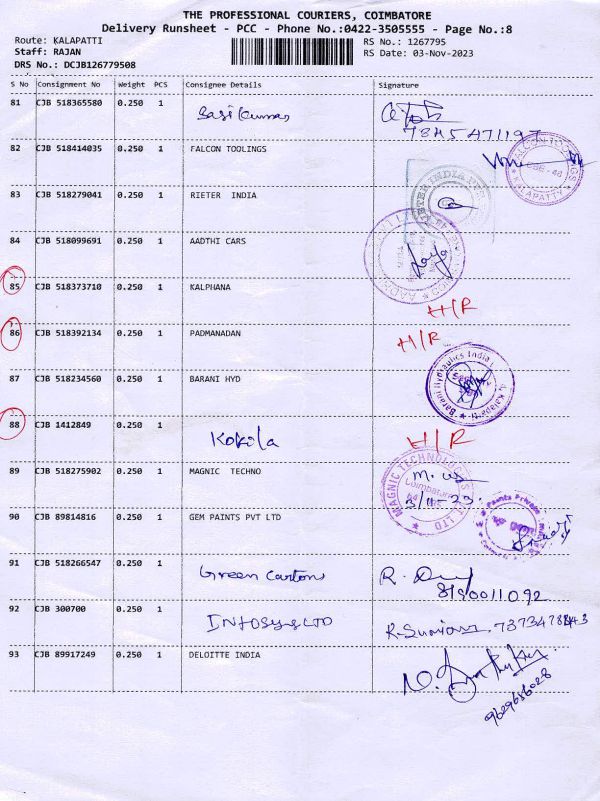 THE PROFESSIONAL COURIERS, COIMBATORE
Delivery Runsheet - PCC - Phone No.:0422-3505555 - Page No.:8
Route: KALAPATTI RS No.: 1267795
Staff: RAJAN RS Date: 03-Nov-2023
DRS No.: DCJB126779508
S No Consignment No Weight PCS Consignee Details Signature
81 CJB 518365580 0.250 1 Sasikumar
82 CJB 518414035 0.250 1 FALCON TOOLINGS
FALCON TOOLINGS CBE-48 KALAPATTY
83 CJB 518279041 0.250 1 RIETER INDIA
84 CJB 518099691 0.250 1 AADTHI CARS
85 CJB 518373710 0.250 1 KALPHANA
H/R
86 CJB 518392134 0.250 1 PADMANADAN
H/R
87 CJB 518234560 0.250 1 BARANI HYD
Barani Hydraulics India Kalapatti
88 CJB 1412849 0.250 1 Kokila H/R
89 CJB 518275902 0.250 1 MAGNIC TECHNO
MAGNIC TECHNOLOGIES LTD Coimbatore
3/11-23
90 CJB 89814816 0.250 1 GEM PAINTS PVT LTD
Paints Private
91 CJB 518266547 0.250 1 Green Carton
92 CJB 300700 0.250 1 INFOSYS LTD
93 CJB 89917249 0.250 1 DELOITTE INDIA
9629656028